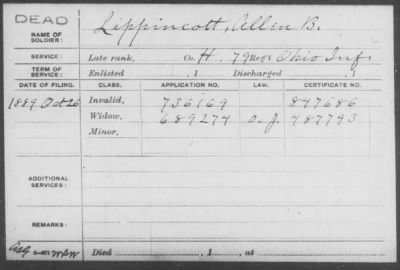 DEAD
NAME OF SOLDIER: Lippincott, Allen B.
SERVICE: Late rank, Co. H. 79 Reg't Ohio Inf.
TERM OF SERVICE: Enlisted , 1 Discharged , 1
DATE OF FILING. CLASS. APPLICATION NO. LAW. CERTIFICATE NO.
1889 Oct 26 Invalid, 736169 847686
Widow, 689274 487793
Minor,
ADDITIONAL SERVICES:
REMARKS:
Died , 1 , at